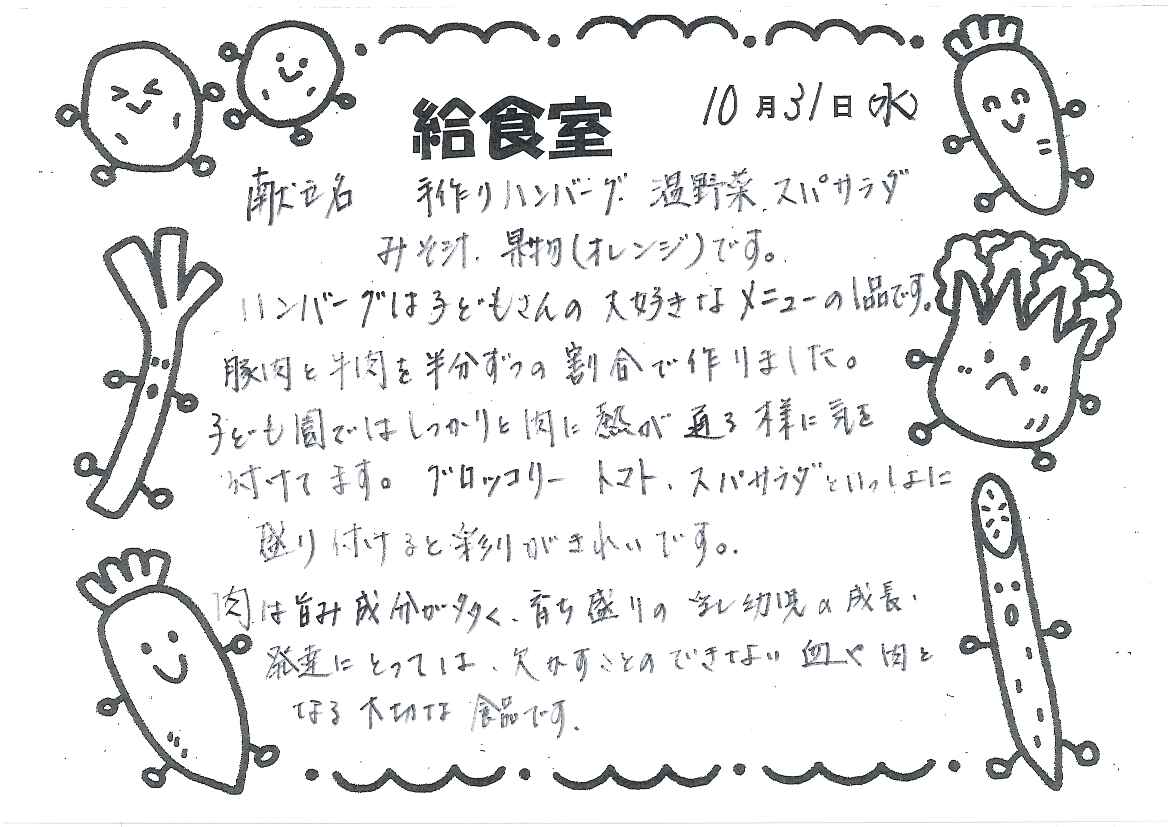 給食室
10月31日(水)
献立名 手作りハンバーグ、温野菜、スパサラダ
みそ汁、果物(オレンジ)です。
ハンバーグは子どもさんの大好きなメニューの1品です。
豚肉と牛肉を半分ずつの割合で作りました。
子ども園ではしっかりと肉に熱が通る様に気を
付けてます。ブロッコリー トマト、スパサラダといっしょに
盛り付けると彩りがきれいです。
肉は旨み成分が多く、育ち盛りの乳幼児の成長・
発達にとっては、欠かすことのできない血や肉と
なる大切な食品です。